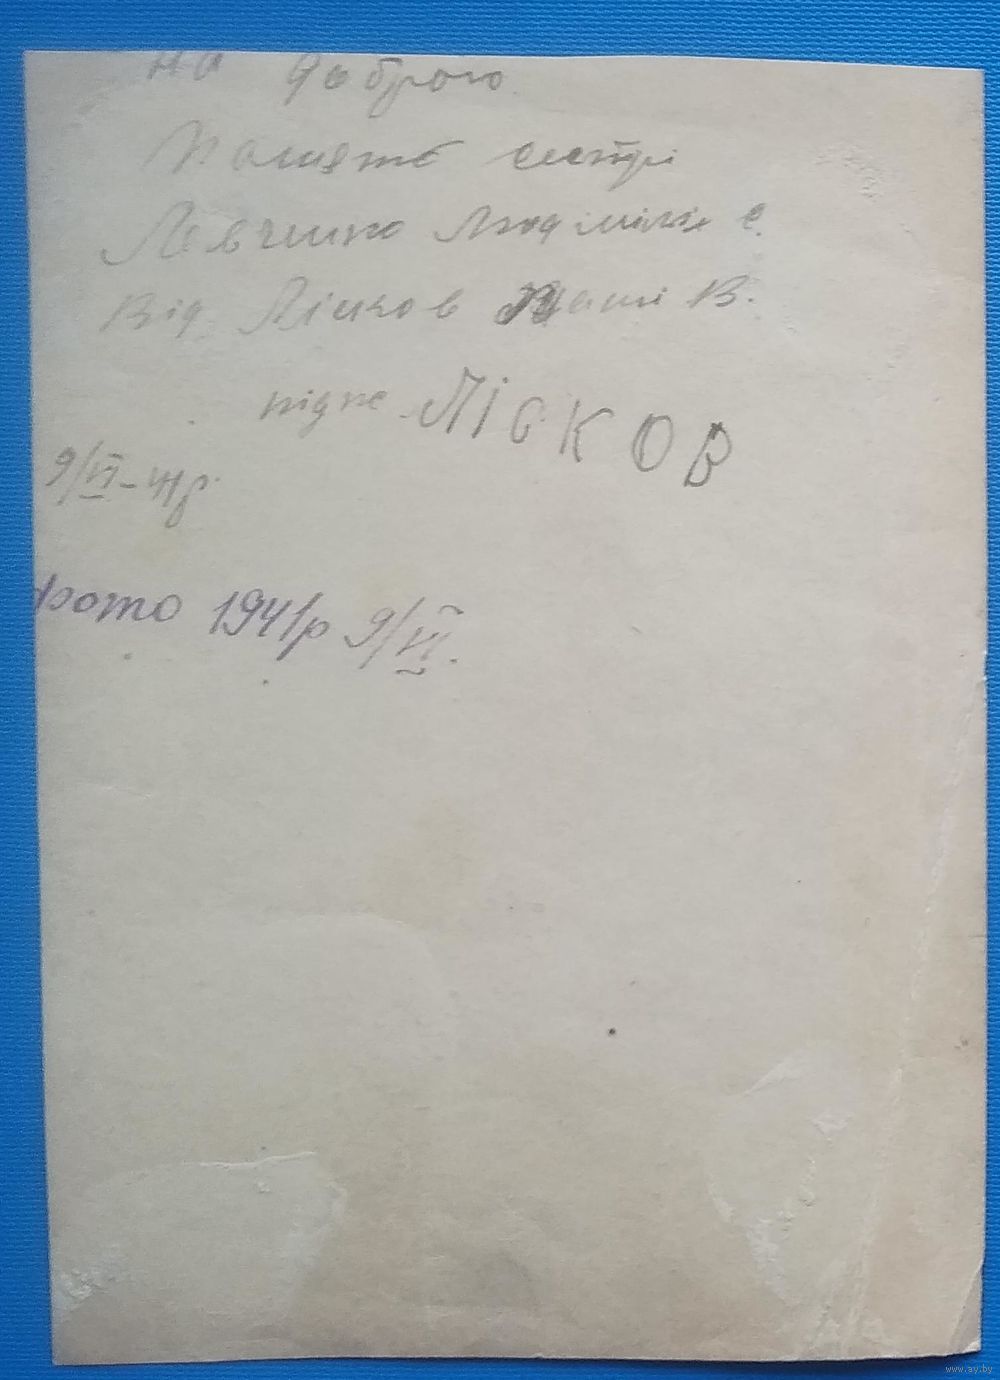 на доброго
Память сестрі
Левченко Людмилі Є.
Від Лісков В.
підпс ЛІСКОВ
9/VI-41р.
фото 1941р 9/VI.
www.ay.by